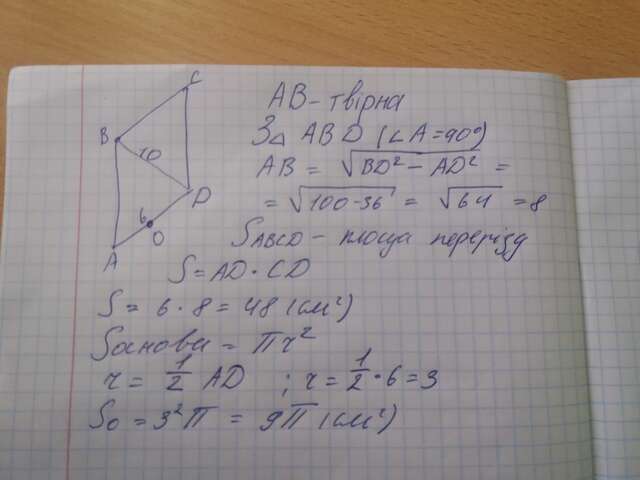 B
C
A
D
O
6
10
AB - твірна
За ABD (∠A=90°)
AB = √BD² - AD² =
= √100-36 = √64 = 8
SABCD - площа перерізу
S = AD · CD
S = 6 · 8 = 48 (см²)
Sоснова = πr²
r = 1/2 AD ; r = 1/2 · 6 = 3
So = 3²π = 9π (см²)